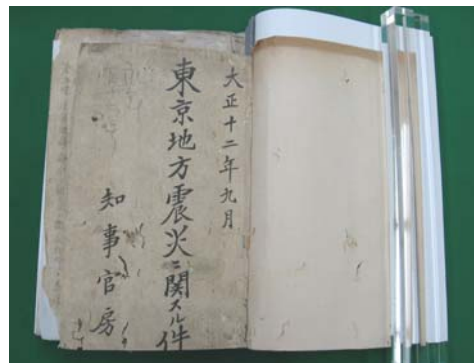 大正十二年九月
東京地方震災ニ関スル件
知事官房